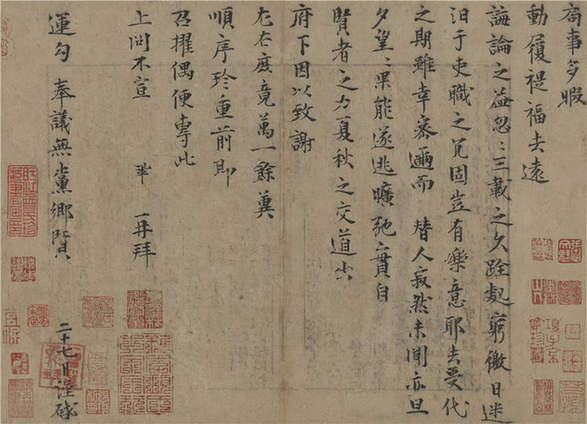 局事多暇
動履禔福去遠
誨論之益忽〻三載之久跧處窮徼日迷
汩于吏職之冗固豈有樂意耶去受代
之期雖幸密邇而替人寂然未聞亦旦
夕望〻果能遂逃曠弛實自
賢者之力夏秋之交道出
府下因以致謝
左右庶竟萬一餘冀
順序珍重前即
召擢偶便專此
上問不宣 鞏 再拜
運勾奉議無黨鄉賢 二十七日謹啟